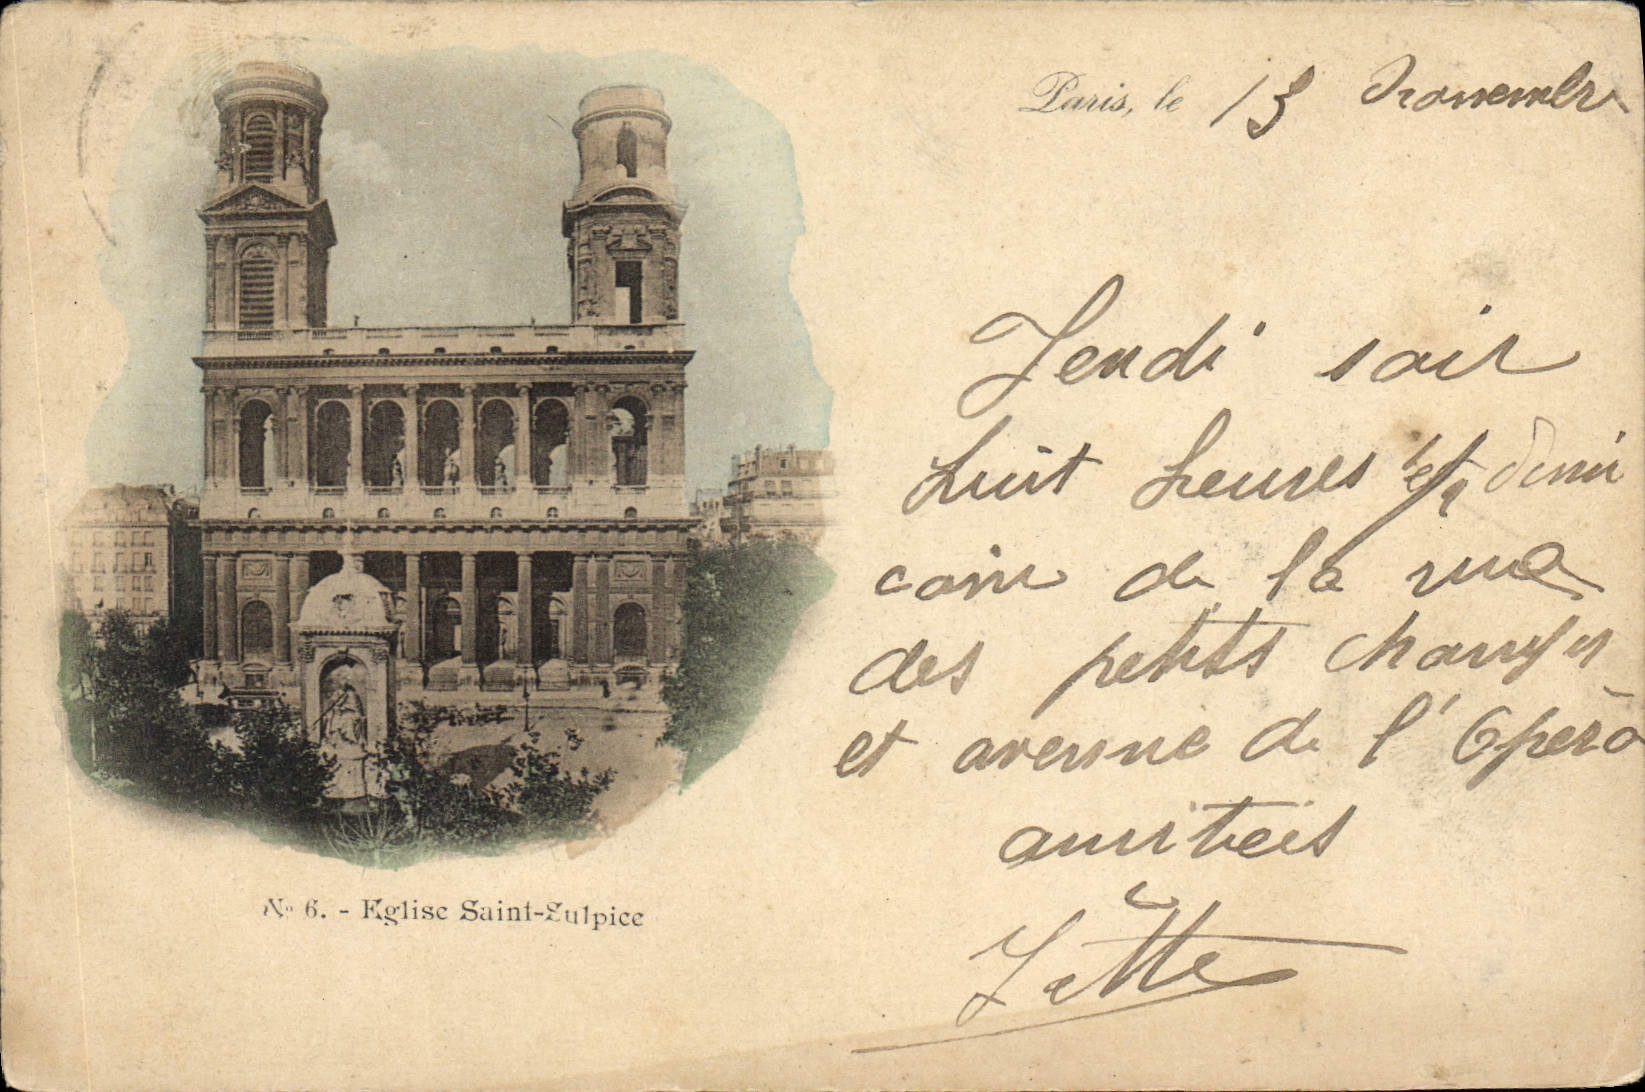 Paris, le 13 novembre
Jeudi soir
huit heures et demi
coin de la rue
des petits champs
et avenue de l'Opera
amitiés
N° 6. - Eglise Saint-Sulpice